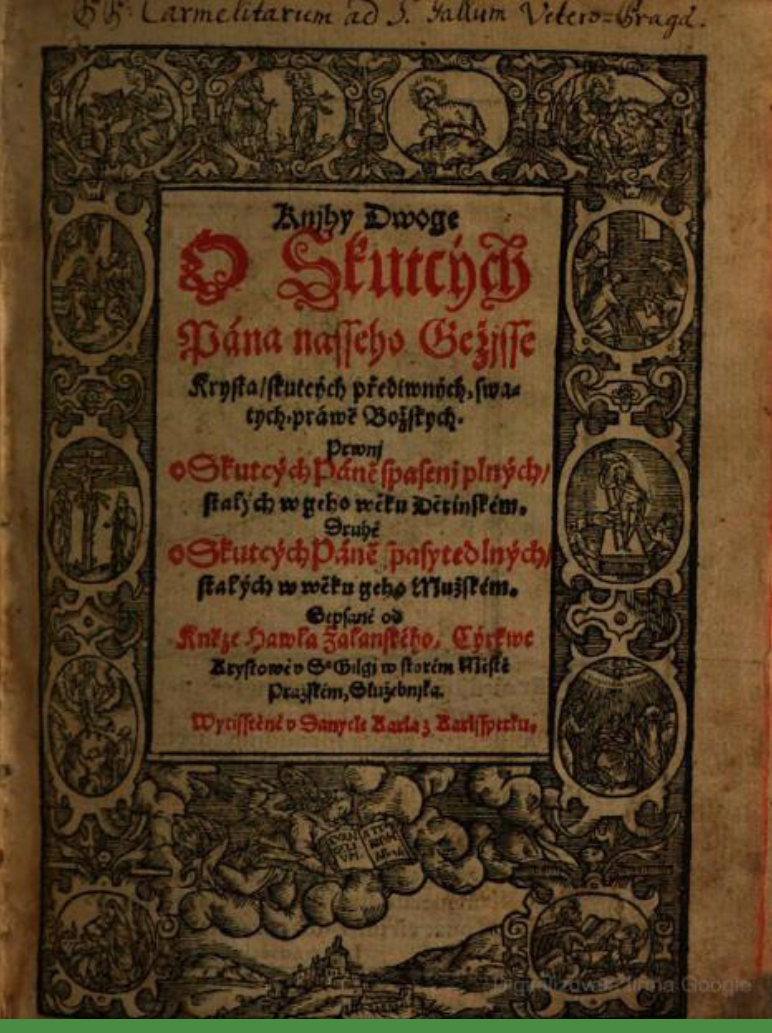 Carmelitarum ad S. Gallum Vetero=Pragæ.
Knjhy Dwoge
O Skutcých
Pána nasseho Gežjsse
Krysta/skutcých přediwných, swa-
tych, práwě Božských.
Prwnj
o Skutcých Páně spasenj plných/
stalých w geho wěku Dětinském.
Druhé
o Skutcých Páně spasytedlných/
stalých w wěku geho Mužském.
Sepsané od
Kněze Hawla Žalanského, Cýrkwe
Krystowé v Sº Gilgj w starém Městě
Pražském, Služebnjka.
Wytisstěné v Danyele Karla z Karlsperku.
EVAN
GELI
VM
Digitalizováno firma Google